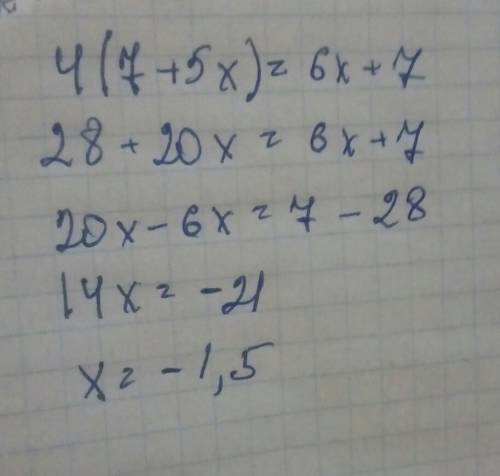 4(7+5x)= 6x+7
28+20x = 6x+7
20x-6x=7-28
14x=-21
x=-1,5